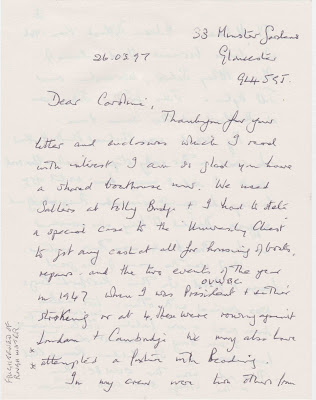 33 Minster Gardens
Gloucester
GL4
26.03.97
Dear Caroline,
Thankyou for your
letter and enclosures which I read
with interest. I am so glad you have
a shared boathouse now. We used
Salters at Folly Bridge + I had to state
a special case to the University Chest
to get any cash at all for housing of boats,
repairs and the two events of the year
OUWBC
in 1947 when I was President + either
stroking or at 4. These were rowing against
London + Cambridge. We may also have
* attempted a fixture with Reading.
In my crew were two others from
ROUGH WATER.